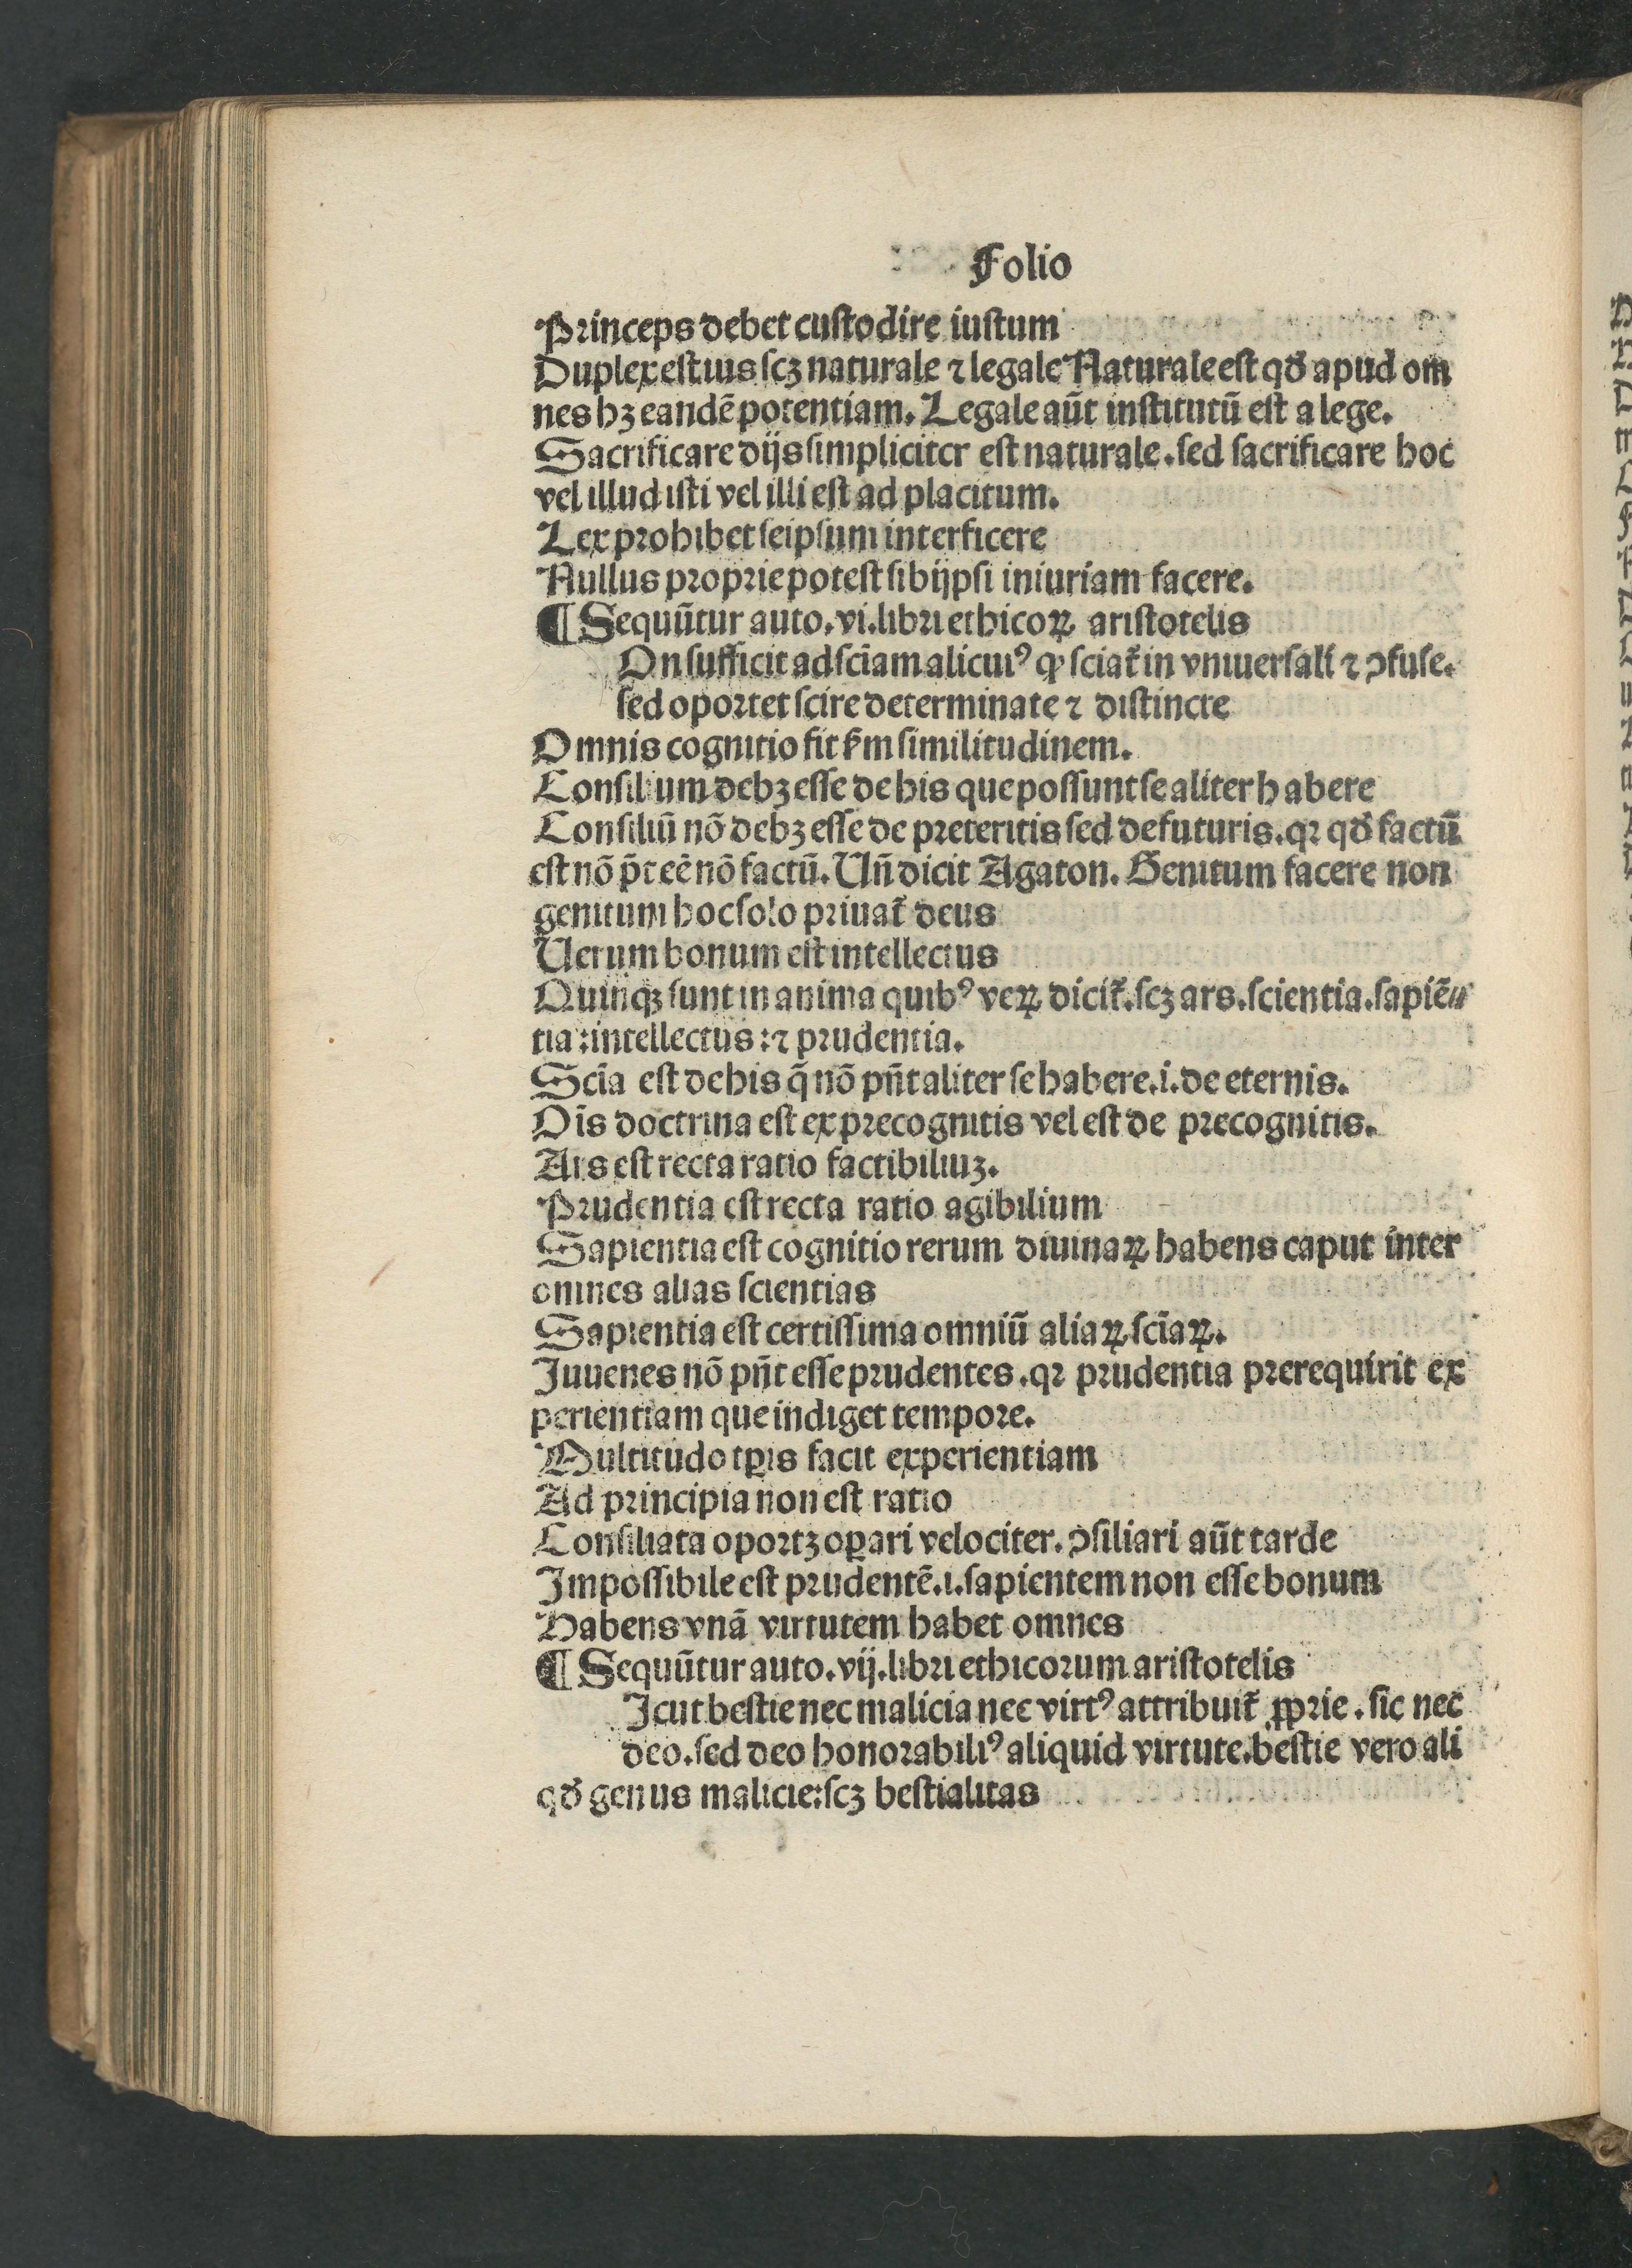 Folio
Princeps debet custodire iustum
Duplex est ius scꝫ naturale ⁊ legale Naturale est qđ apud om
nes hꝫ eandē potentiam. Legale aūt institutū est a lege.
Sacrificare dijs simpliciter est naturale. sed sacrificare hoc
vel illud isti vel illi est ad placitum.
Lex prohibet seipsum interficere
Nullus proprie potest sibijpsi iniuriam facere.
¶ Sequūtur auto. vi. libri ethicoꝝ aristotelis
On sufficit ad sciam alicuiꝰ ꝙ sciat᷑ in vniuersali ⁊ ꝯfuse.
sed oportet scire determinate ⁊ distincte
Omnis cognitio fit ẜm similitudinem.
Consilium debꝫ esse de his que possunt se aliter habere
Consiliū nō debꝫ esse de preteritis sed de futuris. qꝛ qđ factū
est nō p̄t eē nō factū. Vn̄ dicit Agaton. Genitum facere non
genitum hoc solo priuat᷑ deus
Uerum bonum est intellectus
Quinqꝫ sunt in anima quibꝰ veꝝ dicit᷑. scꝫ ars. scientia. sapiē⸗
tia: intellectus: ⁊ prudentia.
Scīa est de his q̄ nō pn̄t aliter se habere .i. de eternis.
Oīs doctrina est ex precognitis vel est de precognitis.
Ars est recta ratio factibiliuꝫ.
Prudentia est recta ratio agibilium
Sapientia est cognitio rerum diuinaꝝ habens caput inter
omnes alias scientias
Sapientia est certissima omniū aliaꝝ scīaꝝ.
Iuuenes nō pn̄t esse prudentes. qꝛ prudentia prerequirit ex
perientiam que indiget tempore.
Multitudo tꝑis facit experientiam
Ad principia non est ratio
Consiliata oportꝫ oꝑari velociter. ꝯsiliari aūt tarde
Impossibile est prudentē .i. sapientem non esse bonum
Habens vnā virtutem habet omnes
¶ Sequūtur auto. vij. libri ethicorum aristotelis
Icut bestie nec malicia nec virtꝰ attribuit᷑ ꝓprie. sic nec
deo. sed deo honorabiliꝰ aliquid virtute. bestie vero ali
qđ genus malicie: scꝫ bestialitas